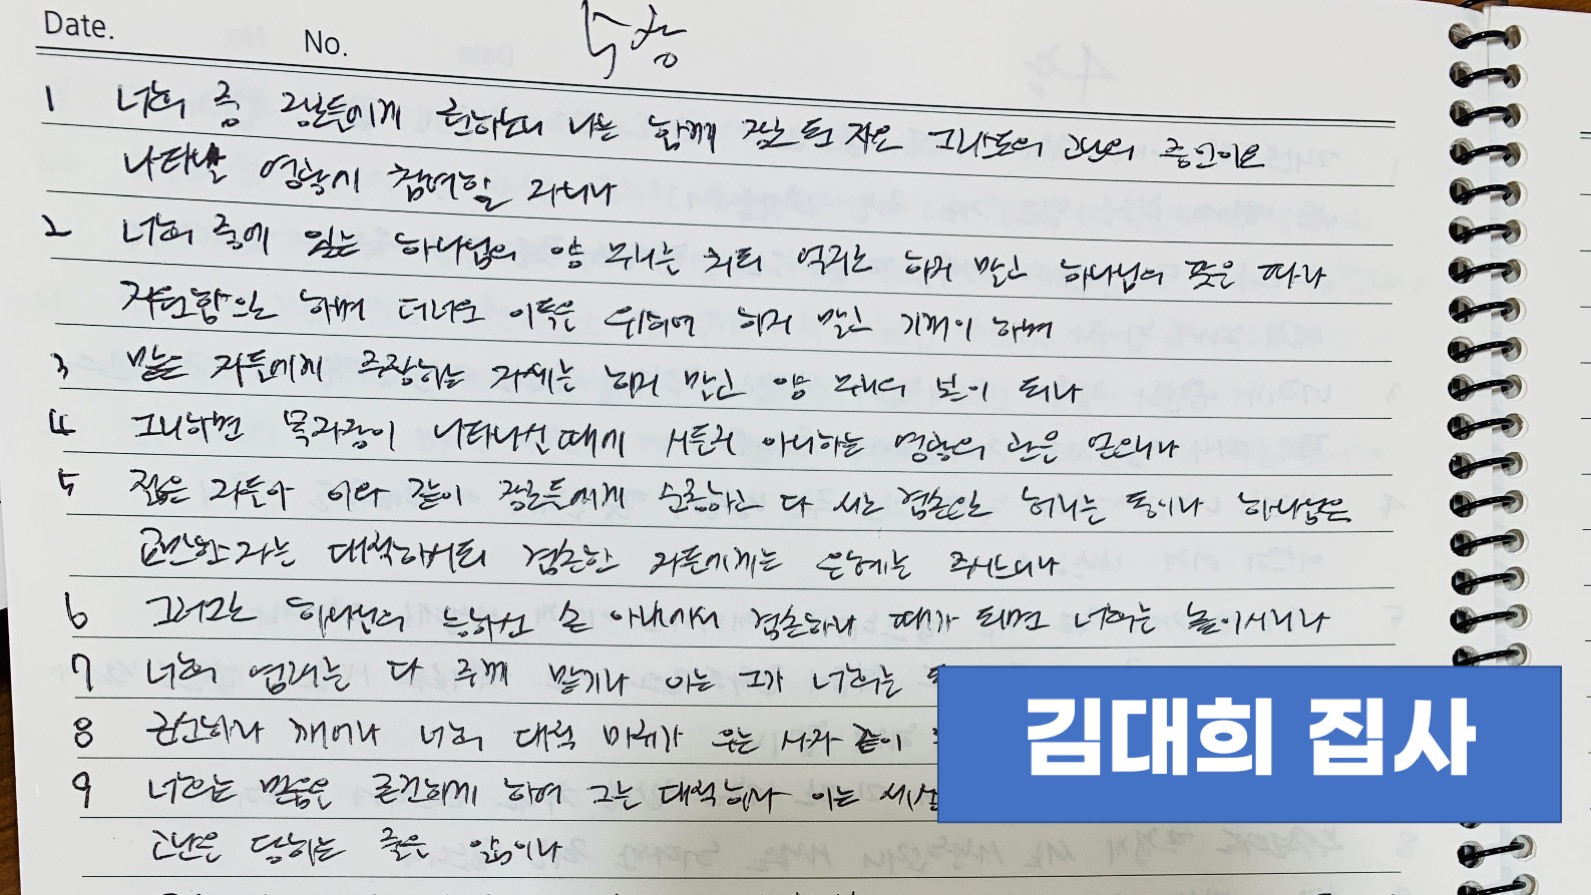 Date.
No.
5장
1 너희 중 장로들에게 권하노니 나는 함께 장로 된 자요 그리스도의 고난의 증인이요
나타날 영광에 참여할 자니라
2 너희 중에 있는 하나님의 양 무리를 치되 억지로 하지 말고 하나님의 뜻을 따라
자원함으로 하며 더러운 이득을 위하여 하지 말고 기꺼이 하며
3 맡은 자들에게 주장하는 자세를 하지 말고 양 무리의 본이 되라
4 그리하면 목자장이 나타나실 때에 시들지 아니하는 영광의 관을 얻으리라
5 젊은 자들아 이와 같이 장로들에게 순종하고 다 서로 겸손으로 허리를 동이라 하나님은
교만한 자를 대적하시되 겸손한 자들에게는 은혜를 주시느니라
6 그러므로 하나님의 능하신 손 아래에서 겸손하라 때가 되면 너희를 높이시리라
7 너희 염려를 다 주께 맡기라 이는 그가 너희를
8 근신하라 깨어라 너희 대적 마귀가 우는 사자 같이
9 너희는 믿음을 굳건하게 하여 그를 대적하라 이는 세상
고난을 당하는 줄을 앎이라
김대희 집사